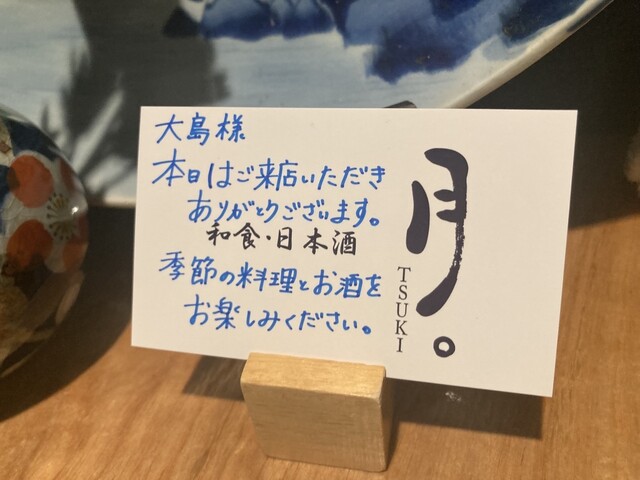 大島様
本日はご来店いただき
ありがとうございます。
和食・日本酒
季節の料理とお酒を
お楽しみください。
月。
TSUKI